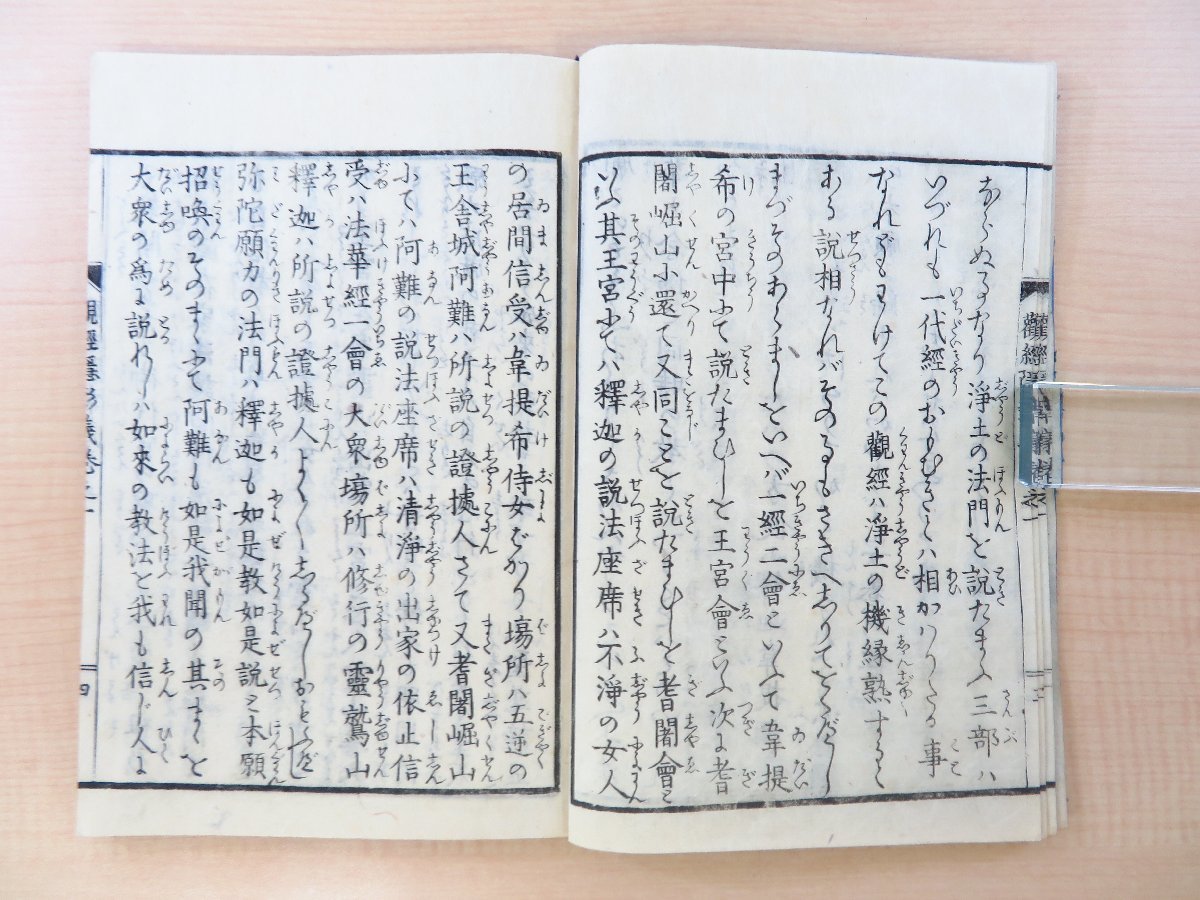 ならぬ事なり浄土の法門を説たまふ三部ハ
いづれも一代經のおもむきとハ相かハりたる事
なれどもわけてこの觀經ハ浄土の機縁熟する
ある説相なれバそのるもさきへしりてをくべし
まづそのあらましをいへバ一經二會といふて韋提
希の宮中にて説たまひしを王宮會といふ次に耆
闍崛山に還て又同ことを説たまひしを耆闍會と
いふ其王宮にてハ釋迦の説法座席ハ不淨の女人
の居間信受ハ韋提希侍女ばかり塲所ハ五逆の
王舎城阿難ハ所説の證據人さて又耆闍崛山
にてハ阿難の説法座席ハ清淨の出家の依止信
受ハ法華經一會の大衆塲所ハ修行の靈鷲山
釋迦ハ所説の證據人よく〳〵しるべし
弥陀願力の法門ハ釋迦も如是教如是説と本願
招喚のそのまゝにて阿難も如是我聞の其まゝを
大衆の爲に説れしハ如來の教法を我も信じ人に
觀經
四